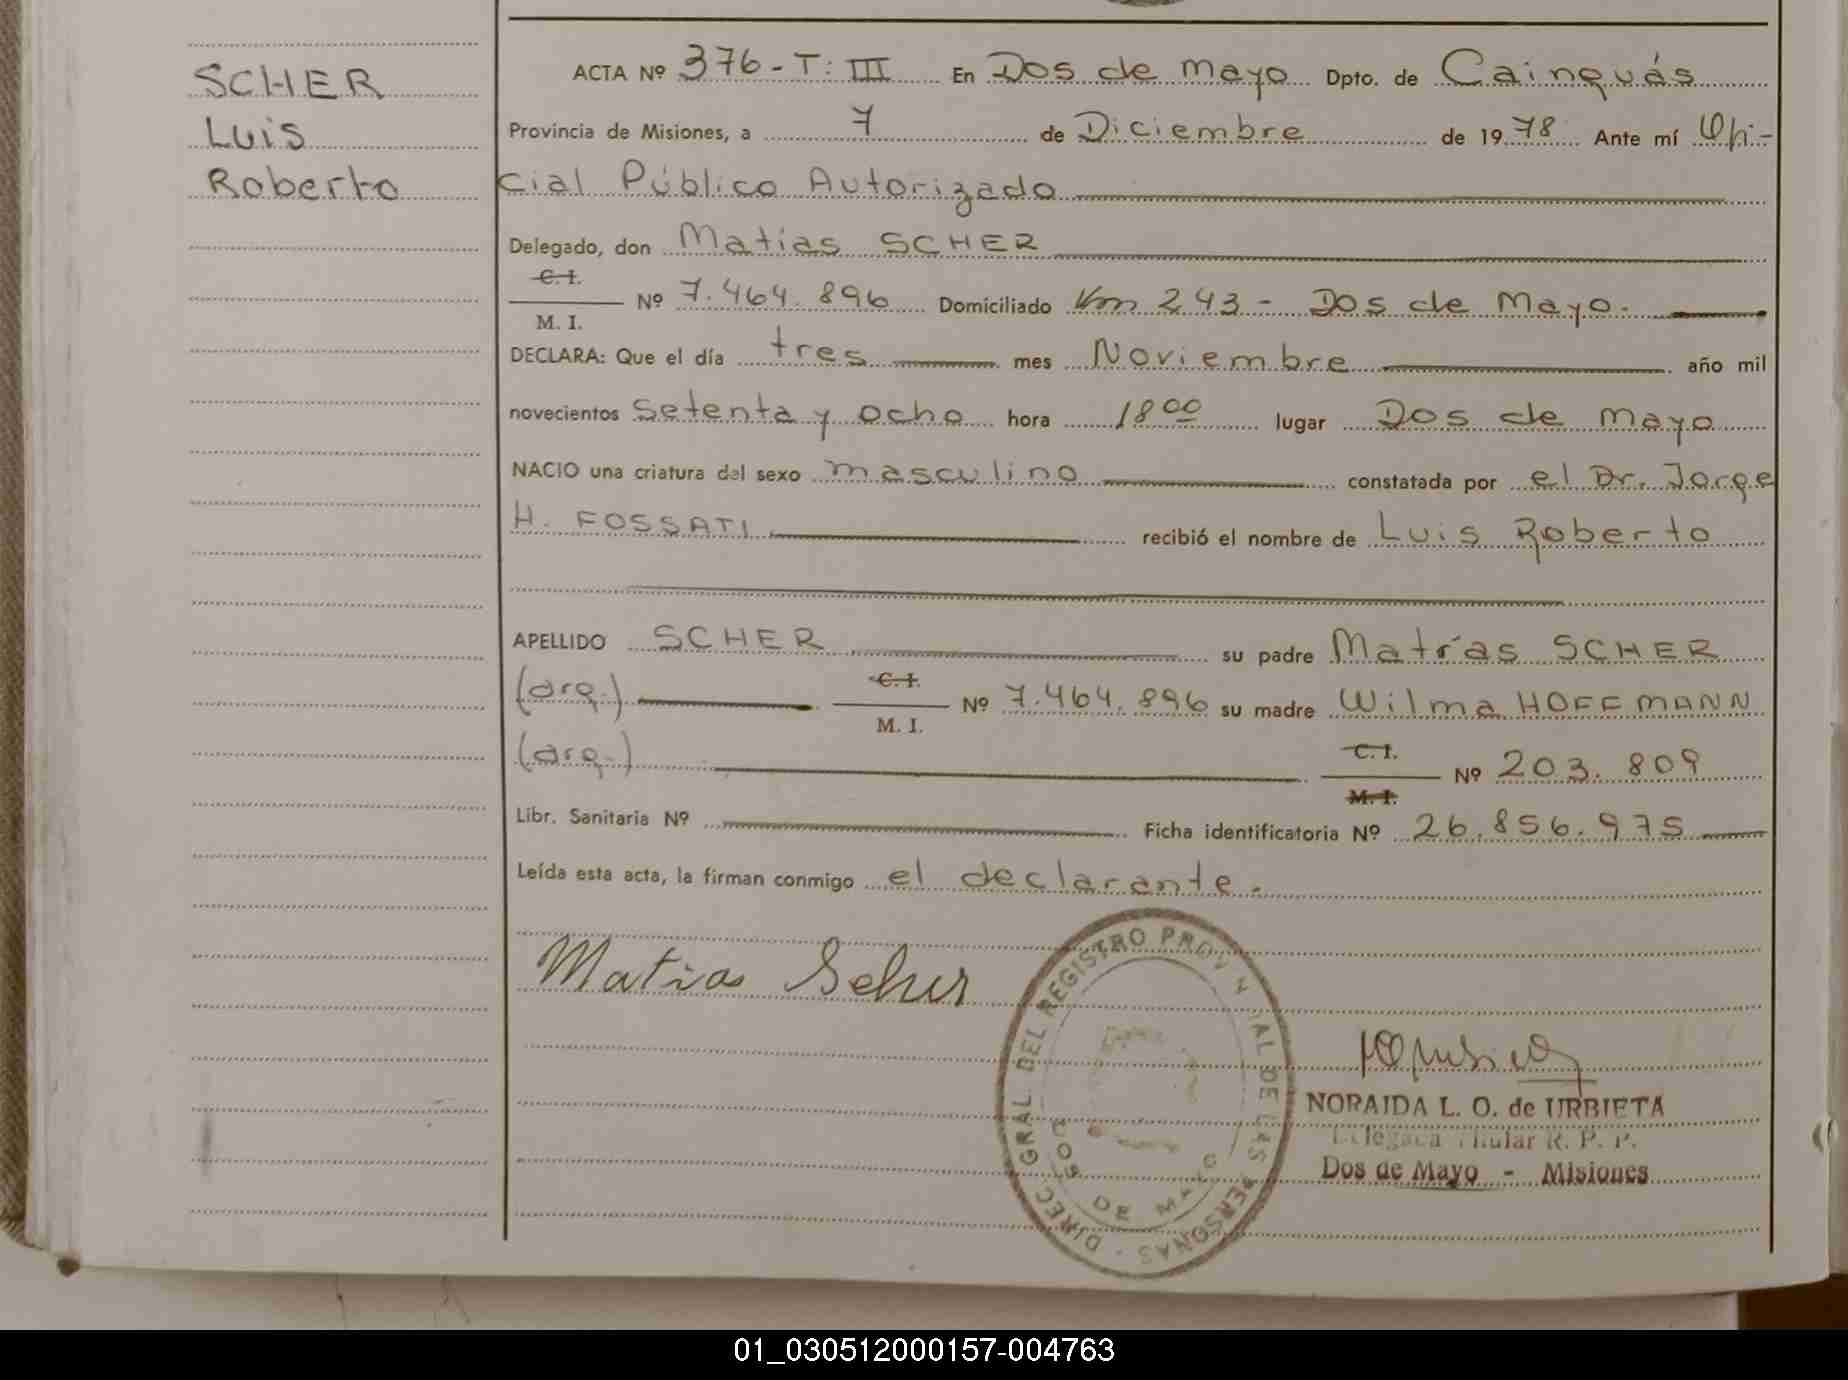 SCHER
Luis
Roberto
ACTA Nº 376-T: III En Dos de mayo Dpto. de Cainguás
Provincia de Misiones, a 7 de Diciembre de 1978 Ante mí Ofi-
cial Público Autorizado
Delegado, don Matias SCHER
C. I.
M. I. Nº 7.464.896 Domiciliado Km 243 - Dos de Mayo.
DECLARA: Que el día tres mes Noviembre año mil
novecientos setenta y ocho hora 18 00 lugar Dos de mayo
NACIO una criatura del sexo masculino constatada por el Dr. Jorge
H. FOSSATI recibió el nombre de Luis Roberto
APELLIDO SCHER su padre Matías SCHER
(arg.) C. I. M. I. Nº 7.464.896 su madre Wilma HOFFMANN
(arg.) C. I. M. I. Nº 203.809
Libr. Sanitaria Nº Ficha identificatoria Nº 26.856.975
Leída esta acta, la firman conmigo el declarante.
Matias Scher
DIREC. GRAL. DEL REGISTRO PROVINCIAL DE LAS PERSONAS
DOS DE MAYO
NORAIDA L. O. de URBIETA
Delegada Titular R. P. P.
Dos de Mayo - Misiones
01_030512000157-004763